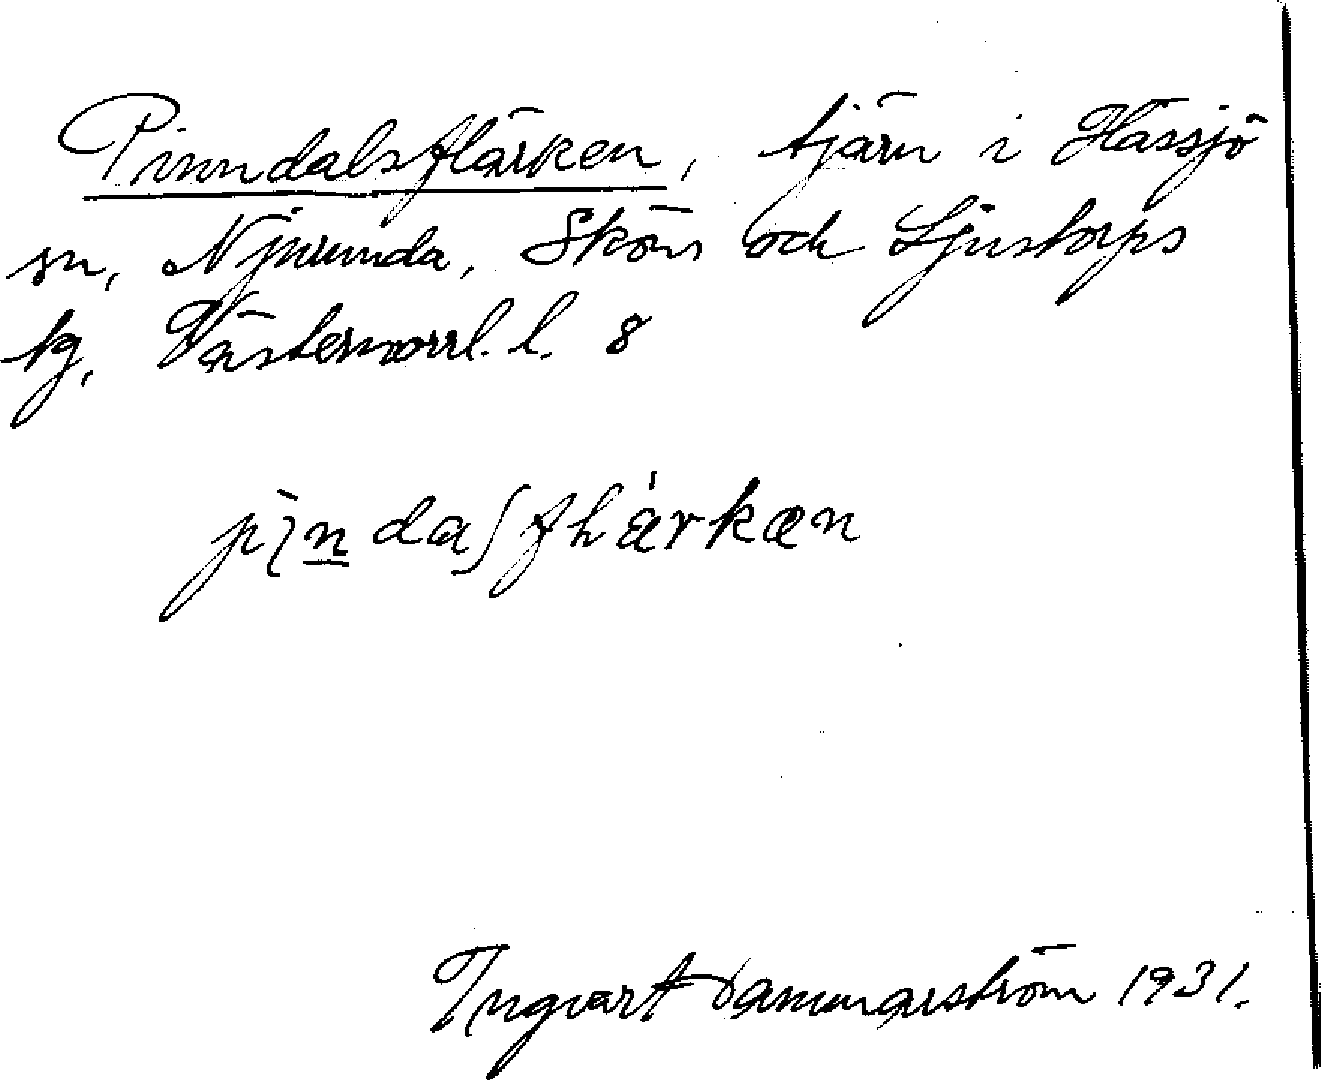 Pinndalsflärken, tjärn i Hässjö
sn, Njurunda, Sköns och Ljustorps
tg, Västernorrl. l. 8
Ingvart Dammarström 1931.